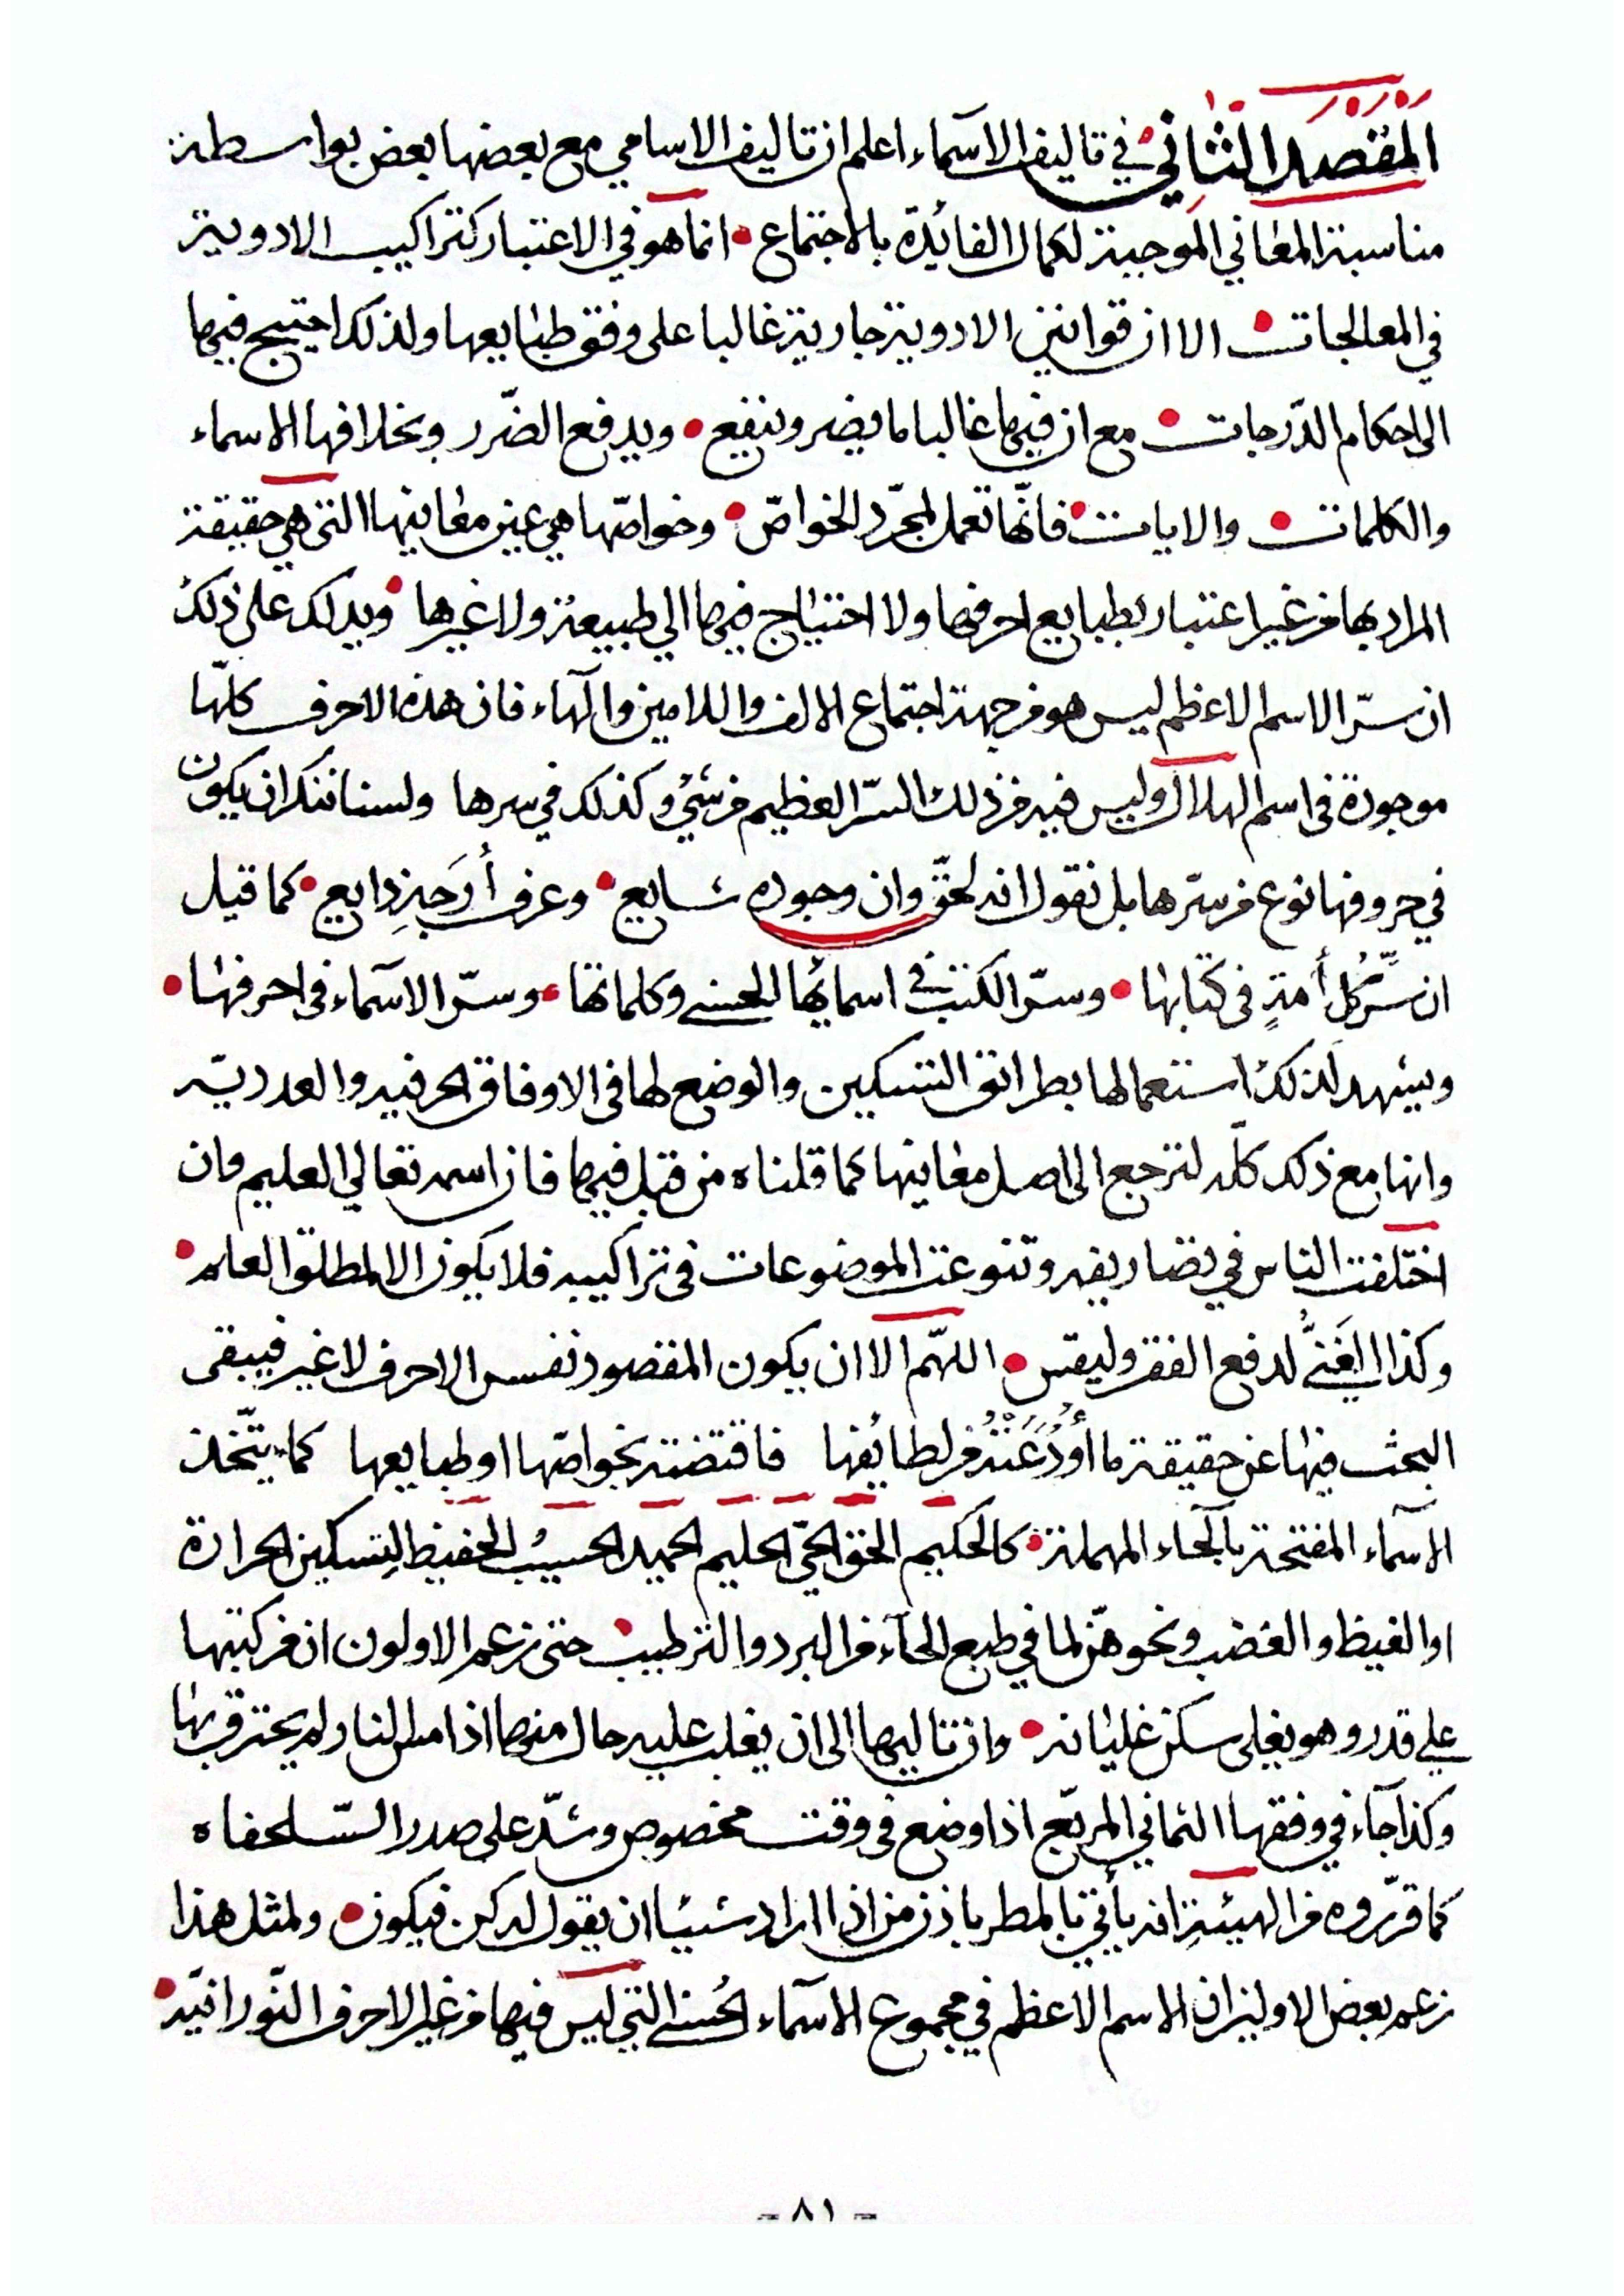 المَقصَد الثَّاني في تاليف الاسماء اعلم ان تاليف الاسامي مع بعضها بعض بواسطة
مناسبة المعاني الموجبة لكمال الفائدة بالاجتماع • انما هو في الاعتبار كتراكيب الادوية
في المعالجات • الا ان قوانين الادوية جارية غالبا على وفق طبايعها ولذلك احتيج فيها
الى احكام الدّرجات • مع ان فيها غالبا ما يضر وينفع • ويدفع الضّرر وبخلافها الاسماء
والكلمات • والايات • فانّها تعمل لمجرّد الخواصّ • وخواصّها هي عين معانيها التي هي حقيقة
المراد بها من غير اعتبار بطبايع احرفها ولا احتياج فيها الي طبيعة ولا غيرها • ويدلك على ذلك
ان سرّ الاسم الاعظم ليس هو من جهة اجتماع الالف واللامين والهاء فان هذه الاحرف كلّها
موجودة في اسم الهلال وليس فيه من ذلك السّر العظيم من شيء وكذلك في سرها ولسنا ننكر ان يكون
في حروفها نوع من سرّها بل نقول انه لحقّ وان وجوده شايع • وعرف أَرَجِهِ ذايع • كما قيل
ان سِّرَّ كل أمةٍ في كتابها • وسرّ الكتب في اسمائها الحسنى وكلماتها • وسرّ الاسماء في احرفها •
ويشهد لذلك استعمالها بطرائق التسكين والوضع لها في الاوفاق الحرفيه والعدديّه
وانها مع ذلك كلّه لترجع الى اصل معانيها كما قلناه من قبل فيها فان اسمه تعالي العليم وان
اختلفت الناس في تصاريفه وتنوعت الموضوعات في تراكيبه فلا يكون الا لمطلق العلم •
وكذا الغَنيُّ لدفع الفقر وليقس • اللهّم الا ان يكون المقصود نفس الاحرف لا غير فيبقى
البحث فيها عن حقيقة ما أُودِعَتْهُ من لطائفها فاقتضته بخواصّها او طبايعها كما يتّخذ
الاسماء المفتتحة بالحاء المهملة • كالحكيم الحق الحيّ الحليم الحميد الحسيب الحفيظ لِتسكين الحرارة
او الغيظ والغضب ونحو هنّ لما في طبع الحاء من البرد والترطيب • حتى زعم الاولون ان من كتبها
على قدر وهو يغلى سكن غليانه • وان تاليها الى ان يغلب عليه حال منها اذا مس النار لم يحترق بها
وكذا جاء في وفقها الثماني المربّع اذا وضع في وقت مخصوص وشدّ على صدر السّلحفاه
كما قرّروه من الهيئةِ انه يأتي بالمطر باذن من اذا اراد شيئا ان يقول له كن فيكون • ولمثل هذا
زعم بعض الاولين ان الاسم الاعظم في مجموع الاسماء الحُسنى التي ليس فيها من غير الاحرف النّورانيّه •
- ٨١ -